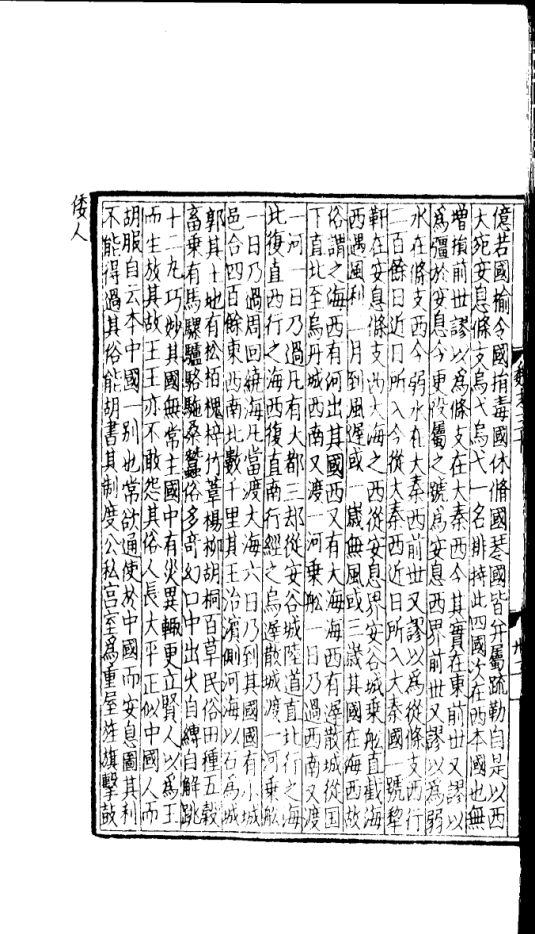 億若國榆令國捐毒國休脩國琴國皆并屬疏勒自是以西
大宛安息條支烏弋烏弋一名排持此四國次在西本國也無
增損前世謬以爲條支在大秦西今其實在東前世又謬以
爲彊於安息今更役屬之號爲安息西界前世又謬以爲弱
水在條支西今弱水在大秦西前世又謬以爲從條支西行
二百餘日近日所入今從大秦西近日所入大秦國一號犂
靬在安息條支西大海之西從安息界安谷城乗舩直截海
西遇風利一月到風遲或一歲無風或三歲其國在海西故
俗謂之海西有河出其國西又有大海海西有遲散城從国
下直北至烏丹城西南又渡一河乗舩一日乃過西南又渡
一河一日乃過凡有大都三却從安谷城陸道直北行之海
北復直西行之海西復直南行經之烏遲散城渡一河乗舩
一日乃過周回繞海凡當渡大海六日乃到其國國有小城
邑合四百餘東西南北數千里其王治濱側河海以石爲城
郭其土地有松栢槐梓竹葦楊柳胡桐百草民俗田種五穀
畜乗有馬騾驢駱駞桑蠶俗多奇幻口中出火自縛自解跳
十二丸巧妙其國無常主國中有災異輒更立賢人以爲王
而生放其故王王亦不敢怨其俗人長大平正似中國人而
胡服自云本中國一别也常欲通使於中國而安息圖其利
不能得過其俗能胡書其制度公私宫室爲重屋旌旗擊鼓
倭人